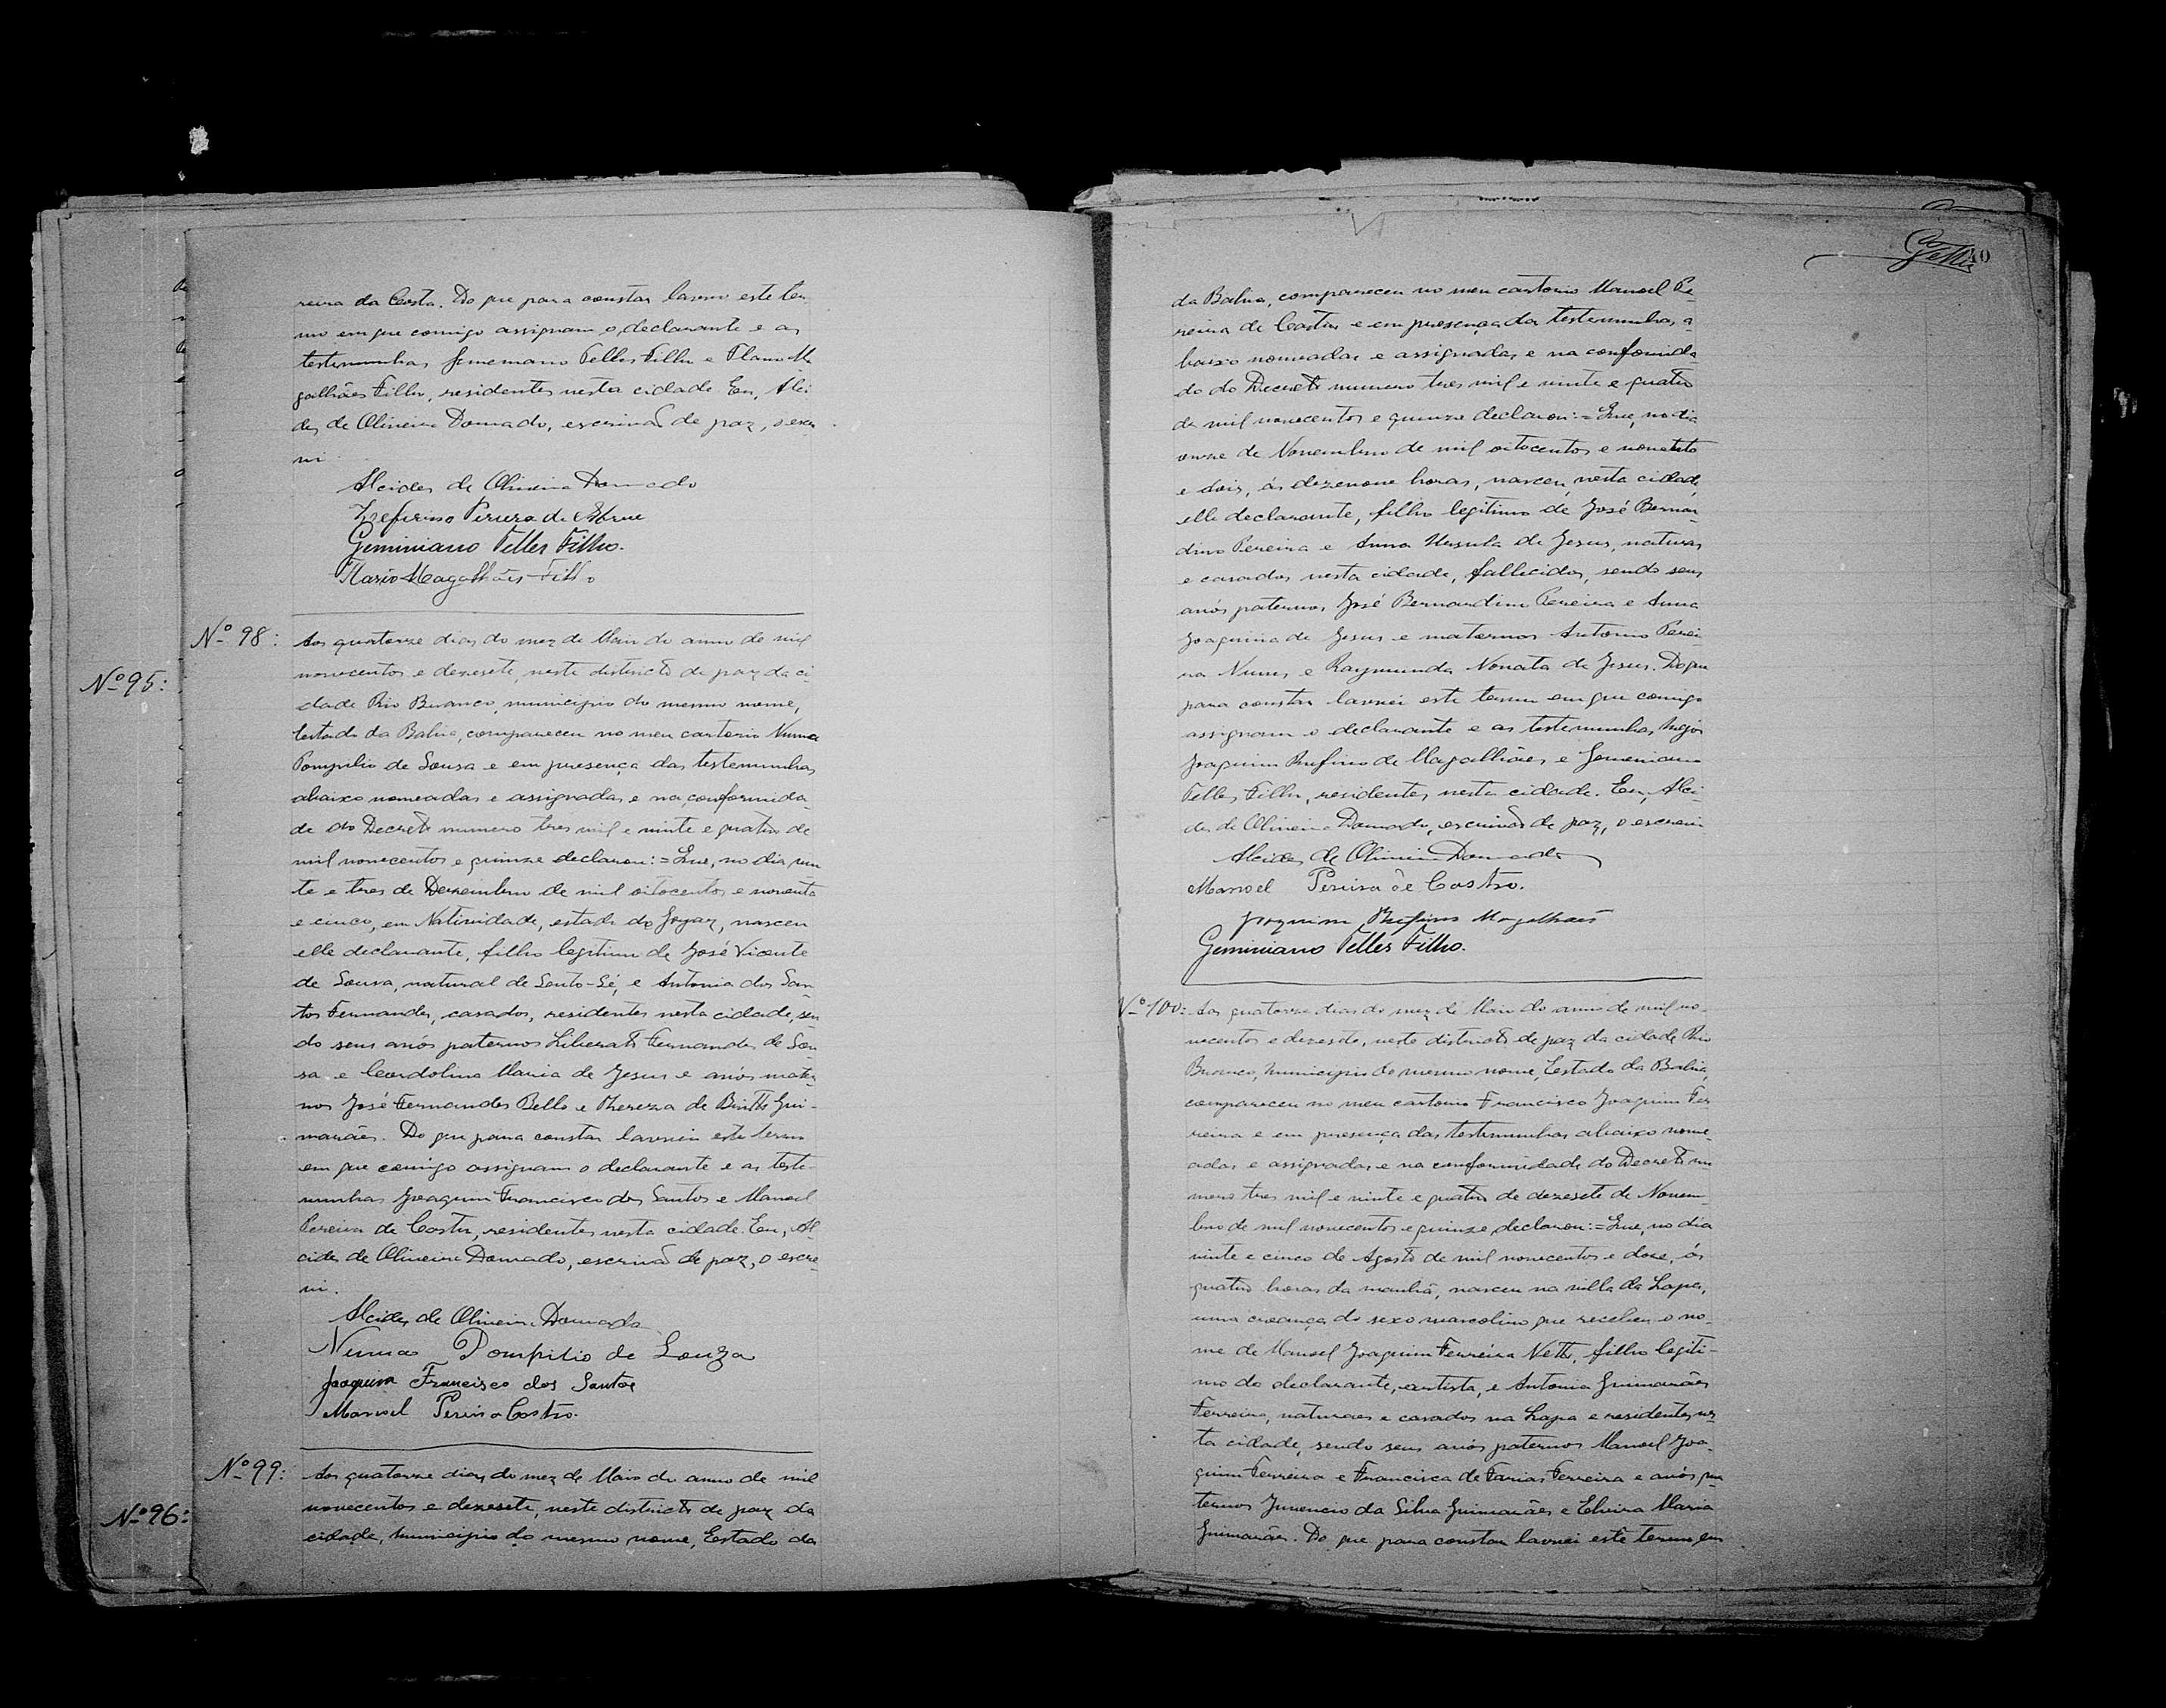 reira da Costa. Do que para constar lavrei este ter
mo em que comigo assignam o declarante e as
testemunhas Geminiano Telles Filho e Flavio Ma
galhães Filho, residentes nesta cidade Eu, Alci
des de Oliveira Dourado, escrivão de paz, o escre
vi.
Alcides de Oliveira Dourado
Zeferino Pereira de Abreu
Geminiano Telles Filho.
Magalhães Filho
Nº 98:
Aos quatorze dias do mez de Maio do anno de mil
novecentos e dezesete, neste districto de paz da ci-
dade Rio Branco, municipio do mesmo nome,
Estado da Bahia, compareceu no meu cartorio Numa
Pompilio de Sousa e em presença das testemunhas
abaixo nomeadas e assignadas e na conformida-
de do Decreto numero tres mil e vinte e quatro de
mil novecentos e quinze declarou:=Que, no dia vin
te e tres de Dezembro de mil oitocentos e noventa
e cinco, em Natividade, estado de Goyaz, nasceu
elle declarante, filho legitimo de José Vicente
de Sousa, natural de Sento-Sé, e Antonia dos San
tos Fernandes, casados, residentes nesta cidade, sen
do seus avós paternos Liberato Fernandes de Sou
sa e Cordolina Maria de Jesus e avós mater
nos José Fernandes Bello e Thereza de Britto Gui-
marães. Do que para constar lavrei este termo
em que comigo assignam o declarante e as teste-
munhas Joaquim Francisco dos Santos e Manoel
Pereira de Castro, residentes nesta cidade. Eu, Al
cides de Oliveira Dourado, escrivão de paz, o escre-
vi.
Alcides de Oliveira Dourado
Numa Pompilio de Souza
Joaquim Francisco dos Santos
Manoel Pereira Castro.
Nº 99:
Aos quatorze dias do mez de Maio do anno de mil
novecentos e dezesete, neste districto de paz da
cidade, municipio do mesmo nome, Estado da
Nº 95:
Nº 96:
40
da Bahia, compareceu no meu cartorio Manoel Pe-
reira de Castro e em presença das testemunhas a-
baixo nomeadas e assignadas e na conformida-
de do Decreto numero tres mil e vinte e quatro
de mil novecentos e quinze declarou:=Que, no dia
onze de Novembro de mil oitocentos e noventa
e dois, ás dezenove horas, nasceu, nesta cidade,
elle declarante, filho legitimo de José Bernar-
dino Pereira e Anna Ursula de Jesus, naturaes
e casados nesta cidade, fallecidos, sendo seus
avós paternos José Bernardino Pereira e Anna
Joaquina de Jesus e maternos Antonio Perei-
ra Nunes e Raymunda Nonata de Jesus. Do que
para constar lavrei este termo em que comigo
assignam o declarante e as testemunhas Major
Joaquim Rufino de Magalhães e Geminiano
Telles Filho, residentes nesta cidade. Eu, Alci-
des de Oliveira Dourado, escrivão de paz, o escrevi
Alcides de Oliveira Dourado
Manoel Pereira de Castro.
Joaquim Rufino Magalhães
Geminiano Telles Filho.
Nº 100:
Aos quatorze dias do mez de Maio do anno de mil no-
vecentos e dezesete, neste districto de paz da cidade Rio
Branco, municipio do mesmo nome, Estado da Bahia,
compareceu no meu cartorio Francisco Joaquim Fer
reira e em presença das testemunhas abaixo nome-
adas e assignadas e na conformidade do Decreto nu-
mero tres mil e vinte e quatro de dezesete de Novem-
bro de mil novecentos e quinze, declarou:=Que, no dia
vinte e cinco de Agosto de mil novecentos e doze, ás
quatro horas da manhã, nasceu na villa da Lapa,
uma creança do sexo masculino que recebeu o no-
me de Manoel Joaquim Ferreira Netto, filho legiti-
mo do declarante, artista, e Antonia Guimarães
Ferreira, naturaes e casados na Lapa e residentes nes
ta cidade, sendo seus avós paternos Manoel Joa-
quim Ferreira e Francisca de Farias Ferreira e avós ma
ternos Juvencio da Silva Guimarães e Elvira Maria
Guimarães. Do que para constar lavrei este termo em